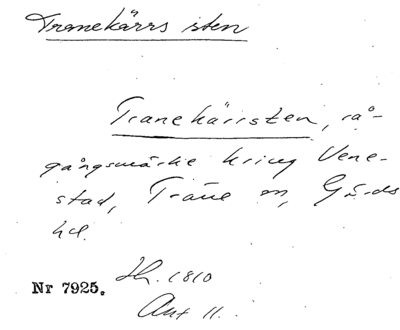 Tranekärrs sten
Tranekärrsten, rå-
gångsmärke kring Vene-
stad, Träne sn, Gärds
hd.
Nr 7925. Sk. 1810
Akt 11.